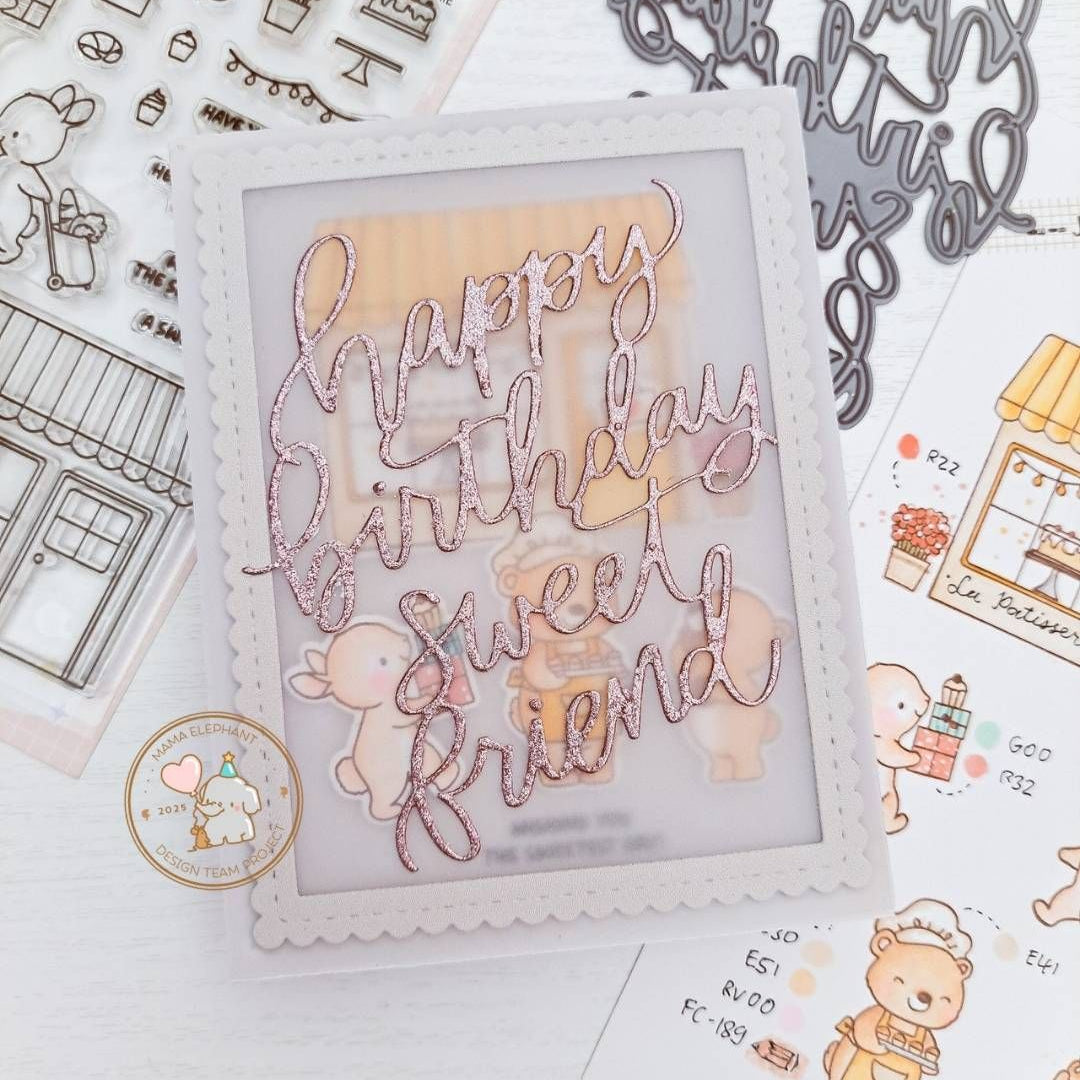 happy
birthday
sweet
friend
THE SWEETEST
MAMA ELEPHANT
2025
DESIGN TEAM PROJECT
HAVE
THE S
A SW
R22
La Patisser
G00
R32
E41
E51
RV00
FC-189